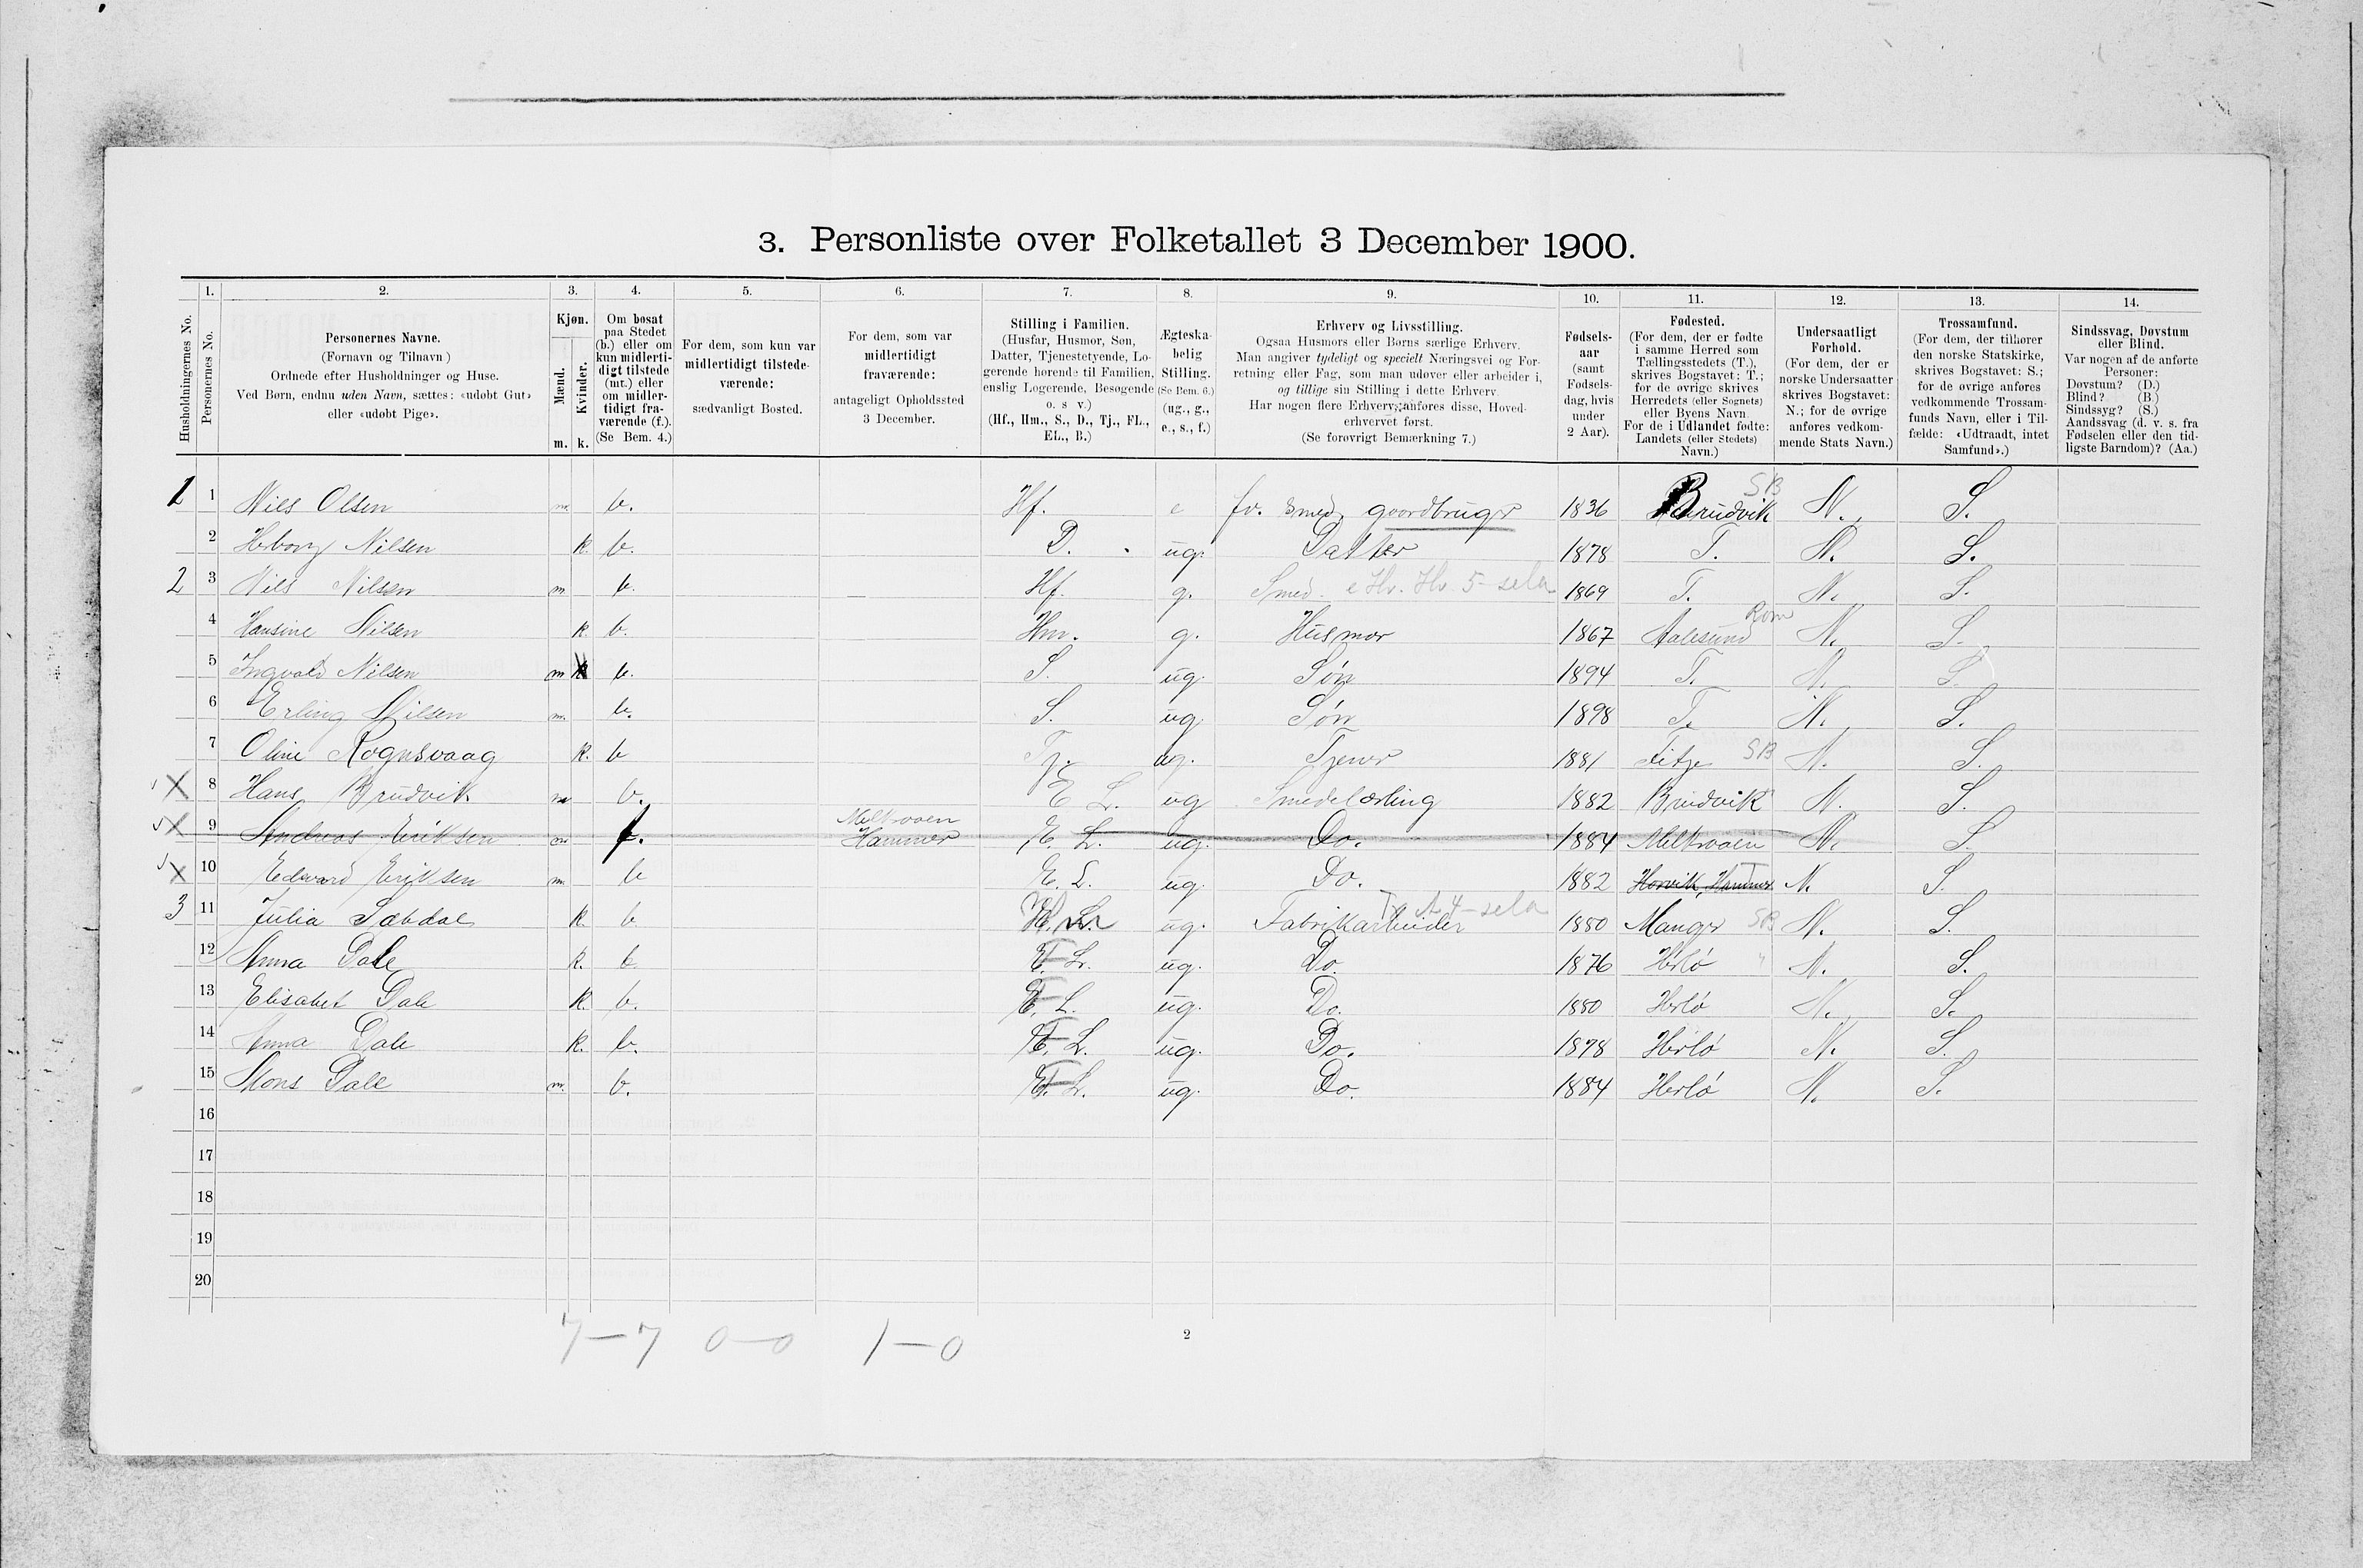 3. Personliste over Folketallet 3 December 1900.
1. 2. 3. 4. 5. 6. 7. 8. 9. 10. 11. 12. 13. 14.
Husholdningernes No.
Personernes No.
Personernes Navne.
(Fornavn og Tilnavn.)
Ordnede efter Husholdninger og Huse.
Ved Børn, endnu uden Navn, sættes: «udøbt Gut»
eller «udøbt Pige».
Kjøn.
Mænd.
Kvinder.
m. k.
Om bosat
paa Stedet
(b.) eller om
kun midlerti-
digt tilstede
(mt.) eller
om midler-
tidigt fra-
værende (f.).
(Se Bem. 4.)
For dem, som kun var
midlertidigt tilstede-
værende:
sædvanligt Bosted.
For dem, som var
midlertidigt
fraværende:
antageligt Opholdssted
3 December.
Stilling i Familien.
(Husfar, Husmor, Søn,
Datter, Tjenestetyende, Lo-
gerende hørende til Familien,
enslig Logerende, Besøgende
o. s v.)
(Hf., Hm., S., D., Tj., FL.,
EL., B.)
Ægteska-
belig
Stilling.
(Se Bem. 6.)
(ug., g.,
e., s., f.)
Erhverv og Livsstilling.
Ogsaa Husmors eller Børns særlige Erhverv.
Man angiver tydeligt og specielt Næringsvei og For-
retning eller Fag, som man udøver eller arbeider i,
og tillige sin Stilling i dette Erhverv.
Har nogen flere Erhverv, anføres disse, Hoved-
erhvervet først.
(Se forøvrigt Bemærkning 7.)
Fødsels-
aar
(samt
Fødsels-
dag, hvis
under
2 Aar).
Fødested.
(For dem, der er fødte
i samme Herred som
Tællingsstedets (T.),
skrives Bogstavet: T.;
for de øvrige skrives
Herredets (eller Sognets)
eller Byens Navn.
For de i Udlandet fødte:
Landets (eller Stedets)
Navn.)
Undersaatligt
Forhold.
(For dem, der er
norske Undersaatter
skrives Bogstavet:
N.; for de øvrige
anføres vedkom-
mende Stats Navn.)
Trossamfund.
(For dem, der tilhører
den norske Statskirke,
skrives Bogstavet: S.;
for de øvrige anføres
vedkommende Trossam-
funds Navn, eller i Til-
fælde: «Udtraadt, intet
Samfund».)
Sindssvag, Døvstum
eller Blind.
Var nogen af de anførte
Personer:
Døvstum? (D.)
Blind? (B.)
Sindssyg? (S.)
Aandssvag (d. v. s. fra
Fødselen eller den tid-
ligste Barndom)? (Aa.)
1 1 Niels Olsen m. b. Hf. e fv. smed, gaardbruger 1836 Brudvik SB N. S.
2 Herborg Nilsen k. b. D. ug. Datter 1878 T. N. S.
2 3 Nils Nilsen m b. Hf. g. Smed. 1869 T. N. S.
4 Hansine Nilsen k. b. Hm. g. Husmor 1867 Aalesund Rom N. S.
5 Ingvald Nilsen m b. S. ug. Søn 1894 T. N. S.
6 Erling Nilsen m. b. S. ug. Søn 1898 T. N. S.
7 Oline Rognsvaag k. b Tj. ug. Tjener 1881 Fitje SB N. S.
X 8 Hans Brudvik m b. E L. ug Smedelærling 1882 Brudvik N. S.
X 9 Andreas Eriksen m. f. Meltvaen Hammer E. L. ug. Do. 1884 Meltvaen N. S.
X 10 Edvard Eriksen m. b E. L. ug. Do. 1882 T N. S.
3 11 Julia Sæbdal k. b ug. Fabrikarbeider 1880 Manger SB N. S.
12 Anna Dale k. b. E. L. ug. Do. 1876 Herlö " N. S.
13 Elisabet Dale k. b. E. L. ug. Do. 1880 Herlö N. S.
14 Anna Dale k. b. E. L. ug. Do. 1878 Herlö N. S.
15 Mons Dale m. b. E. L. ug. Do. 1884 Herlö N. S.
16
17
18
19
20
7-7 0-0 1-0
2